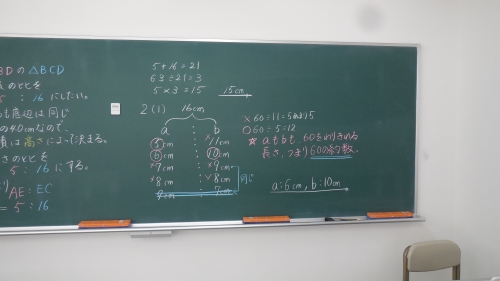 BDの△BCD
のヒヒを
5 : 16 にしたい。
も底辺は同じ
の40cmなので、
積は高さによって決まる。
さのヒヒを
5 : 16 にする。
AE:EC
= 5 : 16
5+16=21
63÷21=3
5×3=15
15cm
2(1) 16cm
a : b
5cm : ×11cm
6cm : 10cm
×7cm : ×9cm
×8cm : ×8cm
9cm : 7cm
同じ
×60÷11=5あまり5
○60÷5=12
★aもbも 60をわりきれる
長さ、つまり60の約数。
a:6cm, b:10cm